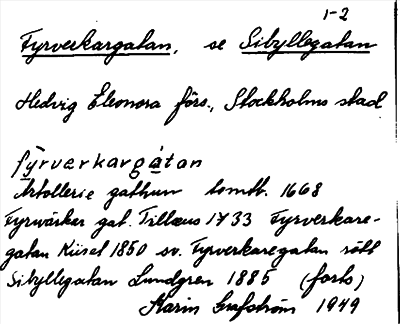 1-2
Fyrverkargatan, se Sibyllegatan
Hedvig Eleonora förs., Stockholms stad
fyrverkargatan
Artollerie gathun tomtb. 1668
Fyrwärkar gat. Tillæus 1733 Fyrverkare-
gatan Kiisel 1850 sv. Fyrverkaregatan rätt
Sibyllegatan Lundgren 1885 (forts)
Karin Grafström 1949